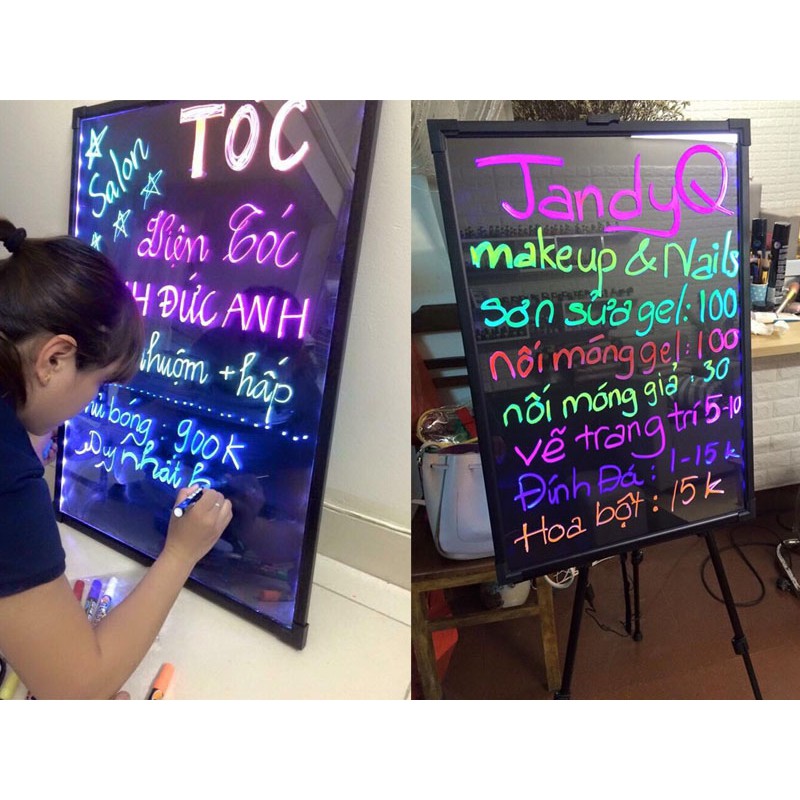 TÓC
Salon
Viện Tóc
H ĐỨC ANH
nhuộm + hấp
bóng : 900K
Duy nhất
JandyQ
makeup & Nails
sơn sửa gel: 100
nối móng gel: 100
nối móng giả: 30
vẽ trang trí 5-10
Đính Đá: 1-15k
Hoa bột: 15k